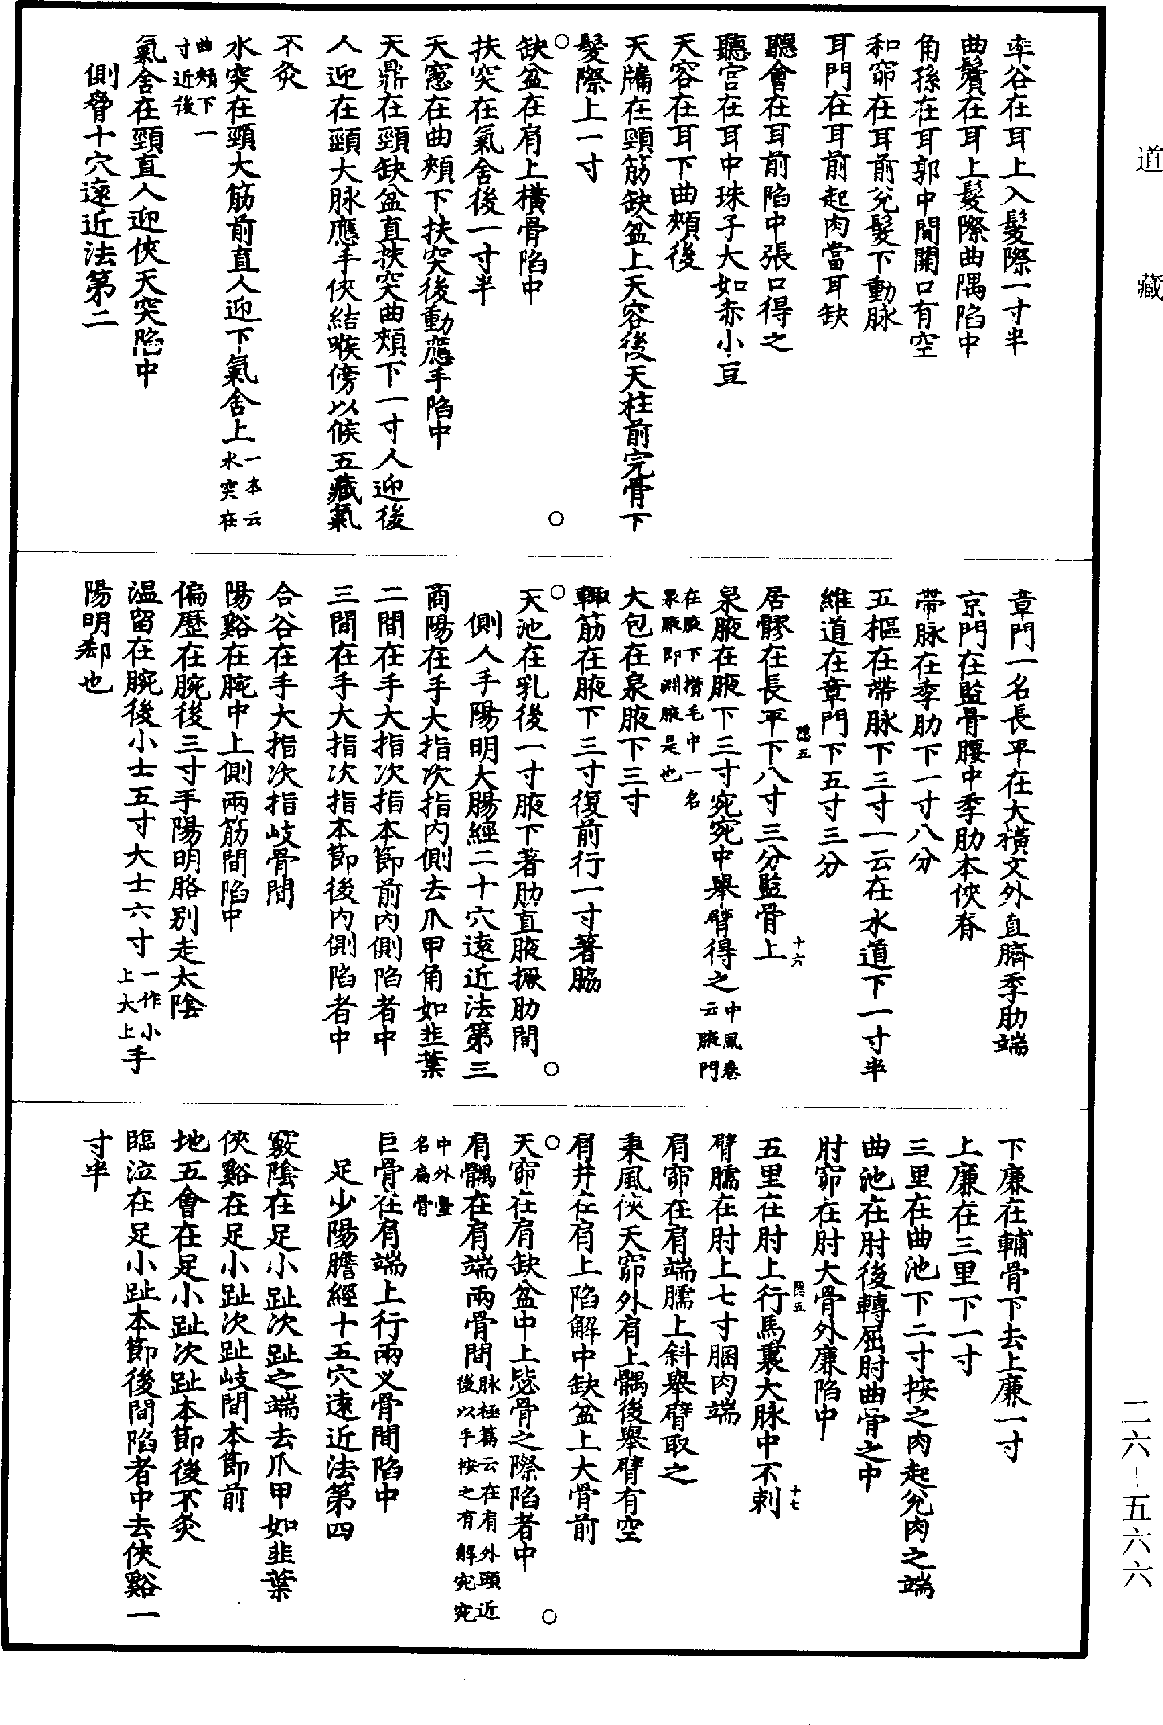 道藏
率谷在耳上入髮際一寸半
曲鬢在耳上髮際曲隅陷中
角孫在耳郭中間開口有空
和窌在耳前兊髮下動脉
耳門在耳前起肉當耳缺
聽會在耳前陷中張口得之
聽宮在耳中珠子大如赤小豆
天容在耳下曲頰後
天牖在頸筋缺盆上天容後天柱前完骨下
髮際上一寸
○
○
缺盆在肩上橫骨陷中
扶突在氣舍後一寸半
天窻在曲頰下扶突後動應手陷中
天鼎在頸缺盆直扶突曲頰下一寸人迎後
人迎在頸大脉應手俠結喉傍以候五藏氣
不灸
水突在頸大筋前直人迎下氣舍上一本云水突在
曲頰下一寸近後
氣舍在頸直人迎俠天突陷中
側脅十穴遠近法第二
章門一名長平在大橫文外直臍季肋端
京門在監骨腰中季肋本俠脊
帶脉在季肋下一寸八分
五樞在帶脉下三寸一云在水道下一寸半
維道在章門下五寸三分
隱五
十六
居髎在長平下八寸三分監骨上
泉腋在腋下三寸宛宛中舉臂得之中風卷云腋門
在腋下攢毛中一名泉腋即淵腋是也
大包在泉腋下三寸
輙筋在腋下三寸復前行一寸著脇
○
○
天池在乳後一寸腋下著肋直腋撅肋間
側人手陽明大腸經二十穴遠近法第三
商陽在手大指次指內側去爪甲角如韭葉
二間在手大指次指本節前內側陷者中
三間在手大指次指本節後內側陷者中
合谷在手大指次指岐骨間
陽谿在腕中上側兩筋間陷中
偏歷在腕後三寸手陽明胳別走太陰
溫留在腕後小士五寸大士六寸一作小上大上手
陽明郄也
下廉在輔骨下去上廉一寸
上廉在三里下一寸
三里在曲池下二寸按之肉起兊肉之端
曲池在肘後轉屈肘曲骨之中
肘窌在肘大骨外廉陷中
隱五
十七
五里在肘上行馬裏大脉中不刺
臂臑在肘上七寸䐃肉端
肩窌在肩端臑上斜舉臂取之
秉風俠天窌外肩上髃後舉臂有空
肩井在肩上陷解中缺盆上大骨前
○
○
天窌在肩缺盆中上毖骨之際陷者中
肩髃在肩端兩骨間脉極篇云在肩外頭近後以手按之有解宛宛
中外臺名扁骨
巨骨在肩端上行兩叉骨間陷中
足少陽膽經十五穴遠近法第四
竅陰在足小趾次趾之端去爪甲如韭葉
俠谿在足小趾次趾岐間本節前
地五會在足小趾次趾本節後不灸
臨泣在足小趾本節後間陷者中去俠谿一
寸半
二六-五六六